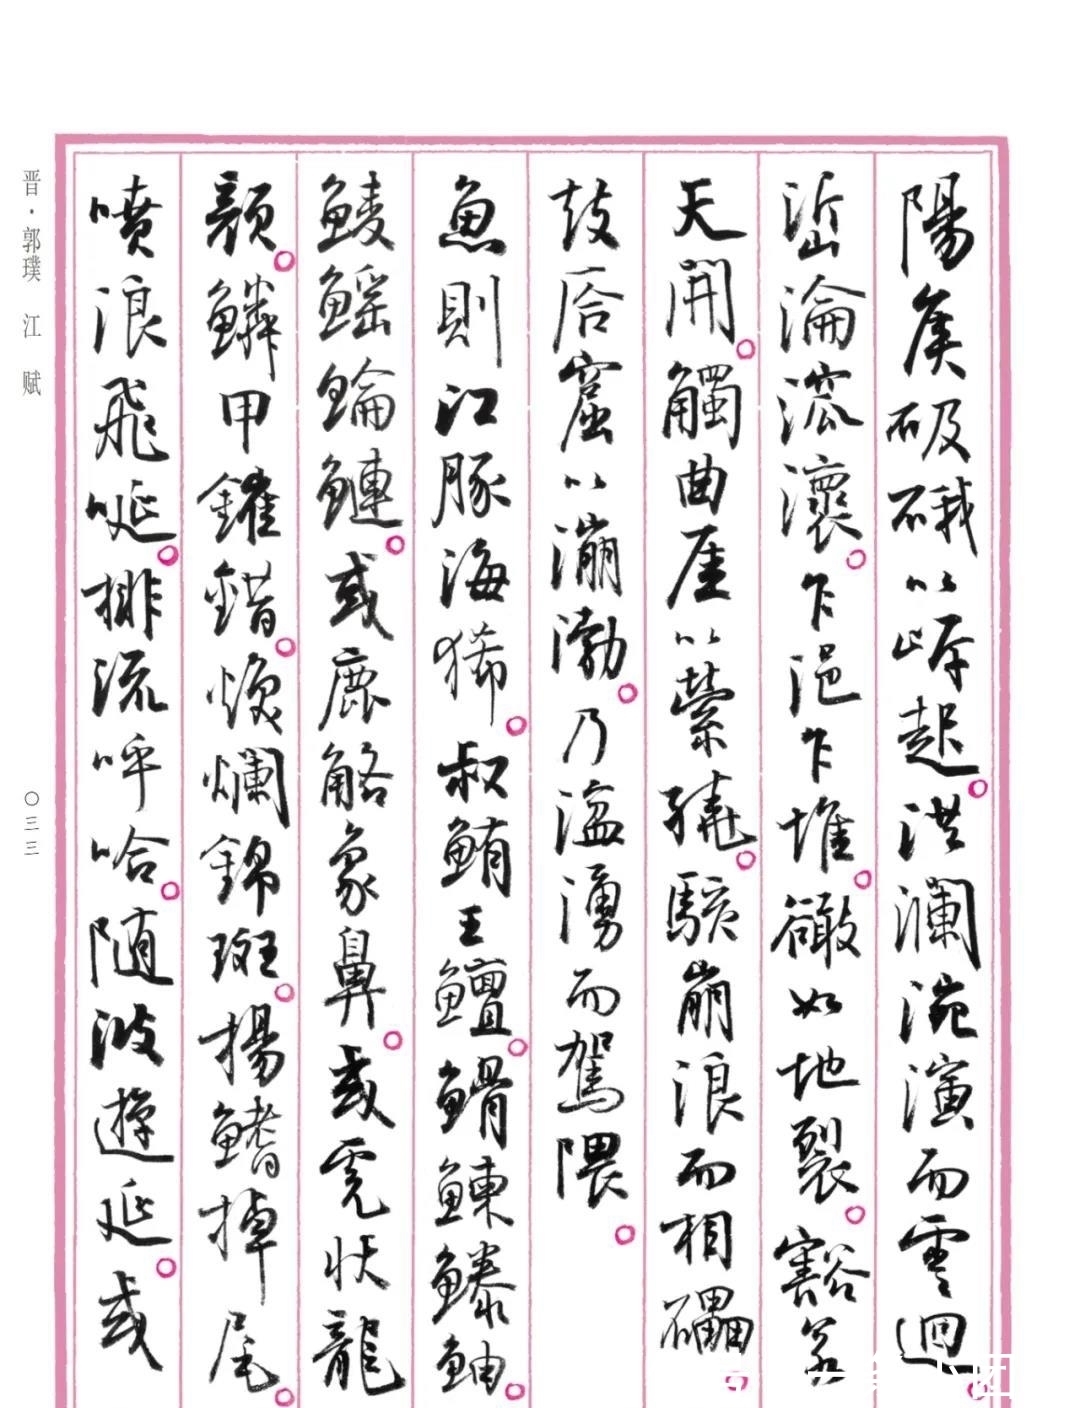 陽侯砐硪以岸起。洪瀾涴演而雲迴。
峾淪溛瀤。乍浥乍堆。豃如地裂。豁若
天開。觸曲厓以縈繞。駭崩浪而相礧。
鼓㕎窟以漰渤。乃湓湧而駕隈。
魚則江豚海狶。叔鮪王鱣。䱻鰊鰧鮋。
鯪鰩鯩鰱。或鹿觡象鼻。或虎狀龍
顏。鱗甲鏙錯。煥爛錦斑。揚鰭掉尾。
噴浪飛唌。排流呼哈。隨波遊延。或
晋·郭璞 江 赋
〇三三